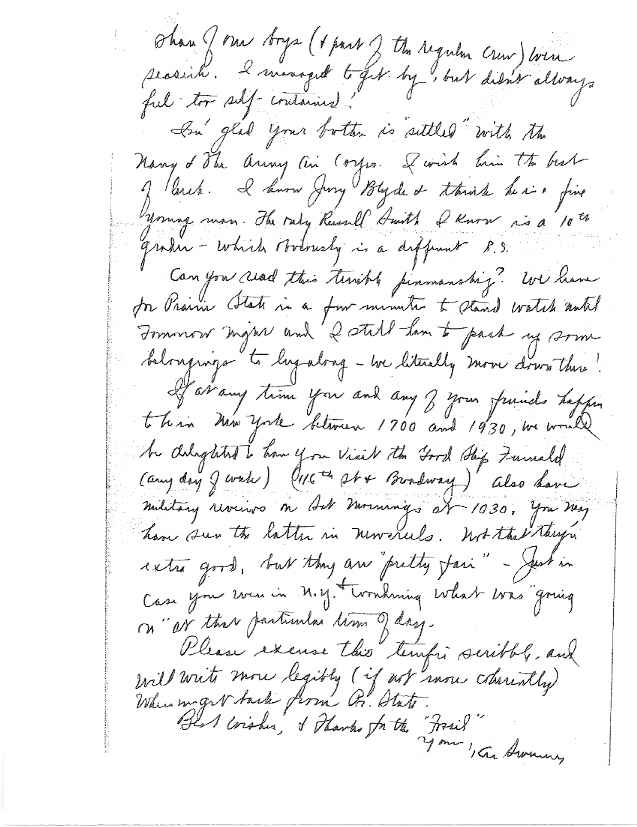 of our boys (& part of the regular crew) were
seasick. I managed to get by, but didn't always
feel too self-contained!
I'm glad your brother is "settled" with the
Navy & the Army Air Corps. I wish him the best
of luck. I know Jerry Blyde & think he is a fine
young man. The only Russell Smith I know is a 10th
grader - which obviously is a different R.S.
Can you read this terrible penmanship? We leave
for Prairie State in a few minutes to stand watch until
Tomorrow night and I still have to pack up some
belongings to lug along - we literally move down there!
If at any time you and any of your friends happen
to be in New York between 1700 and 1930, we would
be delighted to have you visit the Good Ship Furnald
(any day of week) (116th St & Broadway) also have
military reviews on Sat mornings at 1030. You may
have seen the latter in newsreels. Not that they're
extra good, but they are "pretty fair" - Just in
Case you were in N.Y. & wondering what was "going
on" at that particular time of day.
Please excuse this scribble, and
will write more legibly (if not more coherently)
When we get back from Pr. State.
Best wishes, & Thanks for the "Fossil"